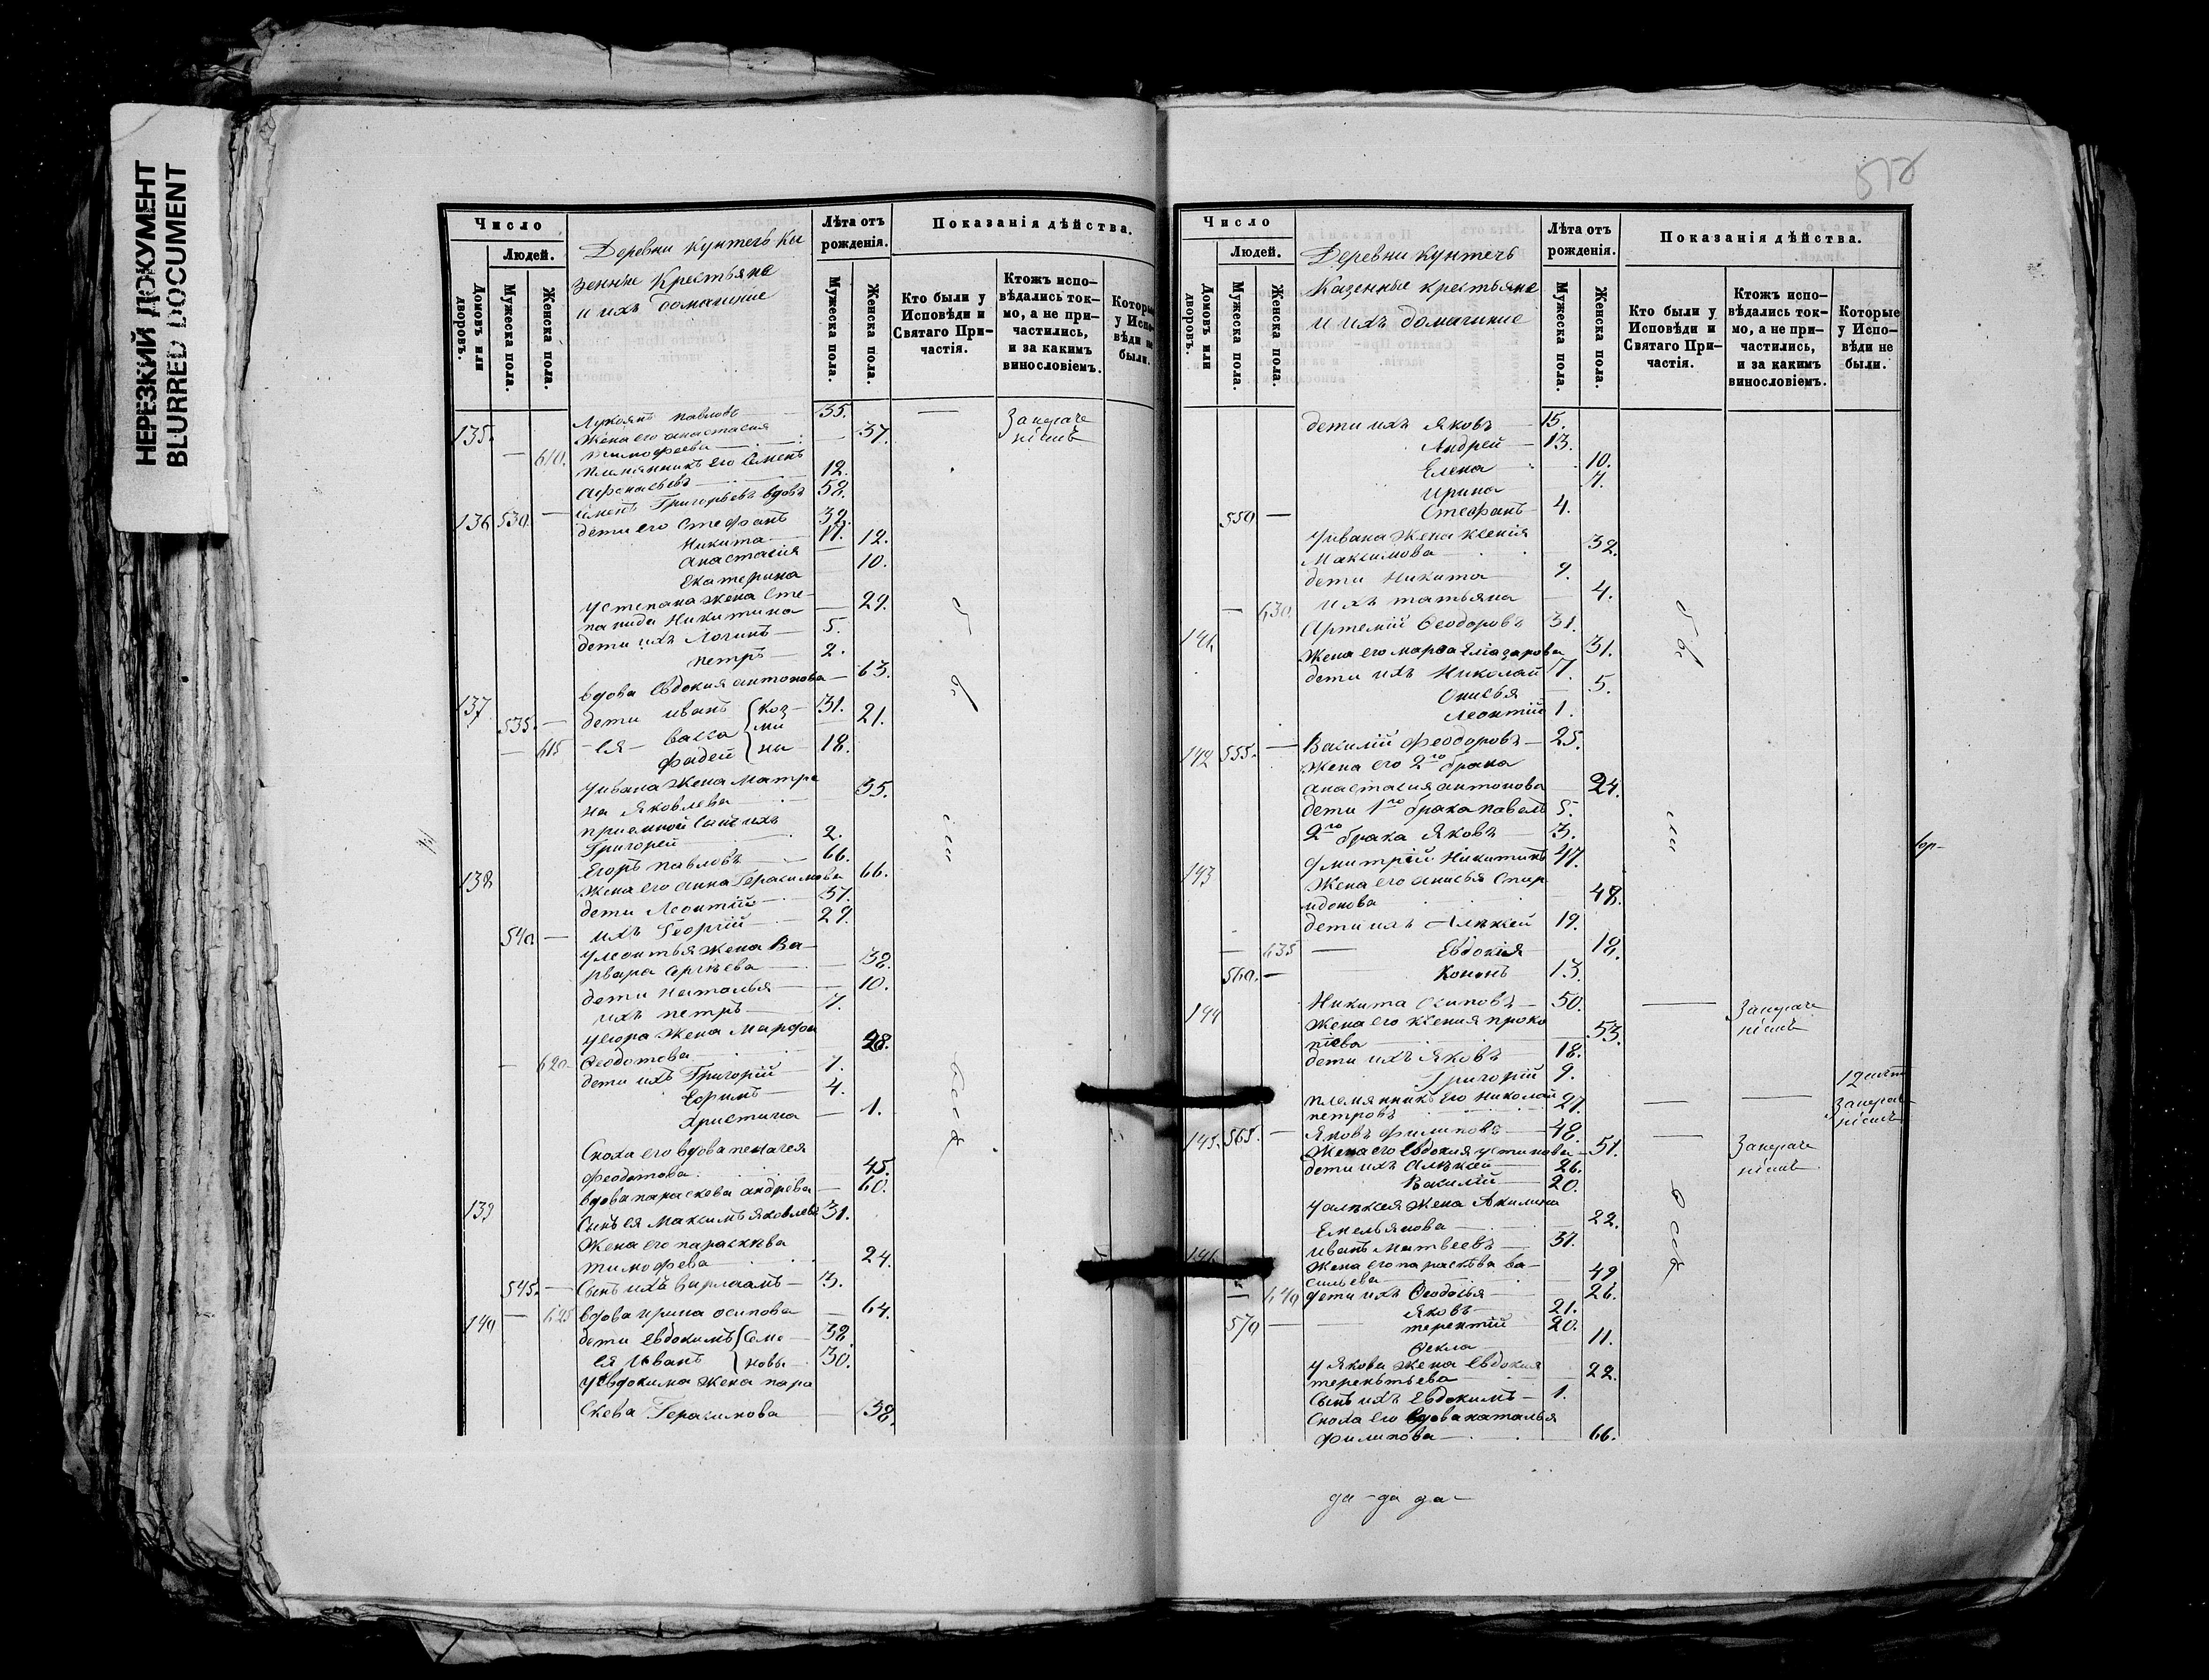 НЕРЕЗКИЙ ДОКУМЕНТ
BLURRED DOCUMENT
Число
Людей.
Домовъ или дворовъ.
Мужеска пола.
Женска пола.
Деревни Кунтечь Ка
зенніи Крестьяне
и ихъ домачніе
Лѣта отъ рожденія.
Мужеска пола.
Женска пола.
Показанія дѣйства.
Кто были у Исповѣди и Святаго При-частія.
Ктожъ испо-вѣдались ток-мо, а не при-частились, и за какимъ винословіемъ.
Которые у Испо-вѣди не были.
Лукоянъ павловъ 35. —
135. Жена его анастасия 37.
— 610. тимофеева
племянникъ его Семенъ
Афонасьевъ 12.
136 530. — семенъ Григорьевъ вдовъ 58.
дети его Стефанъ 32.
Никита 17.
Анастасия 12.
Екатерина 10.
у степана жена Сте-
панида Никитина 29.
дети ихъ Логинъ 5.
петръ 2.
137 вдова Евдокия антонова 63.
535. — дети иванъ коз- 31.
— 615 ея васса ми 21.
фадей на 18.
у ивана жена Матре
на Яковлева 35.
приемной сынъ ихъ
Григорей 2.
138 Егоръ павловъ 66.
жена его анна Герасимова 66.
дети Леонтій 37.
540. — ихъ Георгій 29.
у леонтья жена Ва-
рвара Аргиева 38.
дети наталья 10.
ихъ петръ 7.
у егора жена Марфа
— 620 Феодотова 28.
дети ихъ Григорій 7.
Ефимъ 4.
Христина 1.
Сноха его вдова пелагея
феодотова 45.
139 вдова параскева андреева 60.
Сынъ ея Максимъ Яковлевъ 31.
жена его параскева
тимофева 24.
545. — Сынъ ихъ варлаамъ 3.
140 — 625 вдова ирина осипова 64.
дети Евдокимъ Семе 38
ея Иванъ новы 30.
у евдокима жена пара
скева Герасимова 38.
Число
Людей.
Домовъ или дворовъ.
Мужеска пола.
Женска пола.
Деревни Кунтечь
Казенные крестьяне
и ихъ домачніе
Лѣта отъ рожденія.
Мужеска пола.
Женска пола.
Показанія дѣйства.
Кто были у Исповѣди и Святаго При-частія.
Ктожъ испо-вѣдались ток-мо, а не при-частились, и за какимъ винословіемъ.
Которые у Испо-вѣди не были.
дети ихъ Яковъ 15.
Андрей 13.
Елена 10.
Ирина 7.
550. — Стефанъ 4.
у ивана жена ксенія
Максимова 32.
дети никита 9.
— 630. ихъ татьяна 4.
141. Артемій Феодоровъ 31.
жена его марфа Елиазарова 31.
дети ихъ Николай 7.
Онисья 5.
леонтій 1.
142 555. — Василій Феодоровъ 25.
жена его 2го брака
анастасия антонова 24.
дети 1го брака павелъ 5.
2го брака Яковъ 3.
143 дмитрій Никитинъ 47.
жена его анисья Спир
идонова 48.
дети ихъ Алексей 19.
— 635 — Евдокія 18.
560. — Кононъ 13.
144 Никита осиповъ 50. —
жена его ксения проко
піева 53.
дети ихъ Яковъ 18.
Григорій 9.
племянникъ его Николай 27. — —
петровъ
145. 565. — Яковъ филиповъ 48. —
Жена его Евдокия устинова 51.
дети ихъ Алексей 26.
Василій 20.
у алексея жена Акилина
Емельянова 22.
146 иванъ Матвеевъ 37.
жена его параскева ва-
сильева 49
— 640 дети ихъ Феодосья 26.
Яковъ 21.
570 — — терентій 20.
Фекла 11.
у Якова жена Евдокия
терентьева 22.
Сынъ ихъ Евдокимъ 1.
сноха его вдова наталья
филипова 66.
да - да да